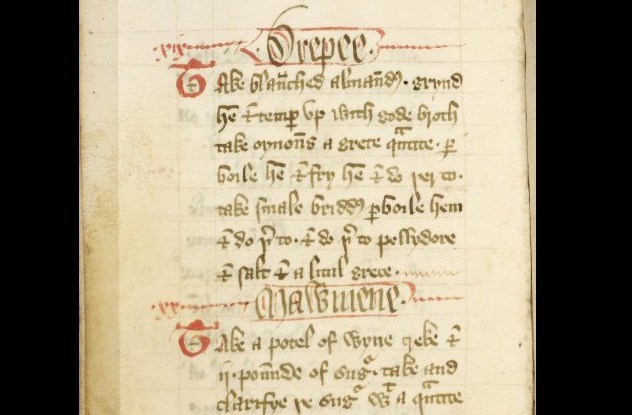 .xix. Drepee.
Take blañched almañdꝭ. grynd
hē ⁊ temꝑ vp with gode broth
take oynoñs a grete qᷓntite. ꝑ
boile hē ⁊ fry hē ⁊ do þer to.
take smale briddꝭ ꝑboile hem
⁊ do þͬto. ⁊ do þͬto pellydore
⁊ salt ⁊ a litul grece.
.xx. Mawmene.
Take a potel of wyne greke ⁊
ij. pounde of sugᷓ. take and
clarifye þe sugᷓ wᷓ a qᷓntite